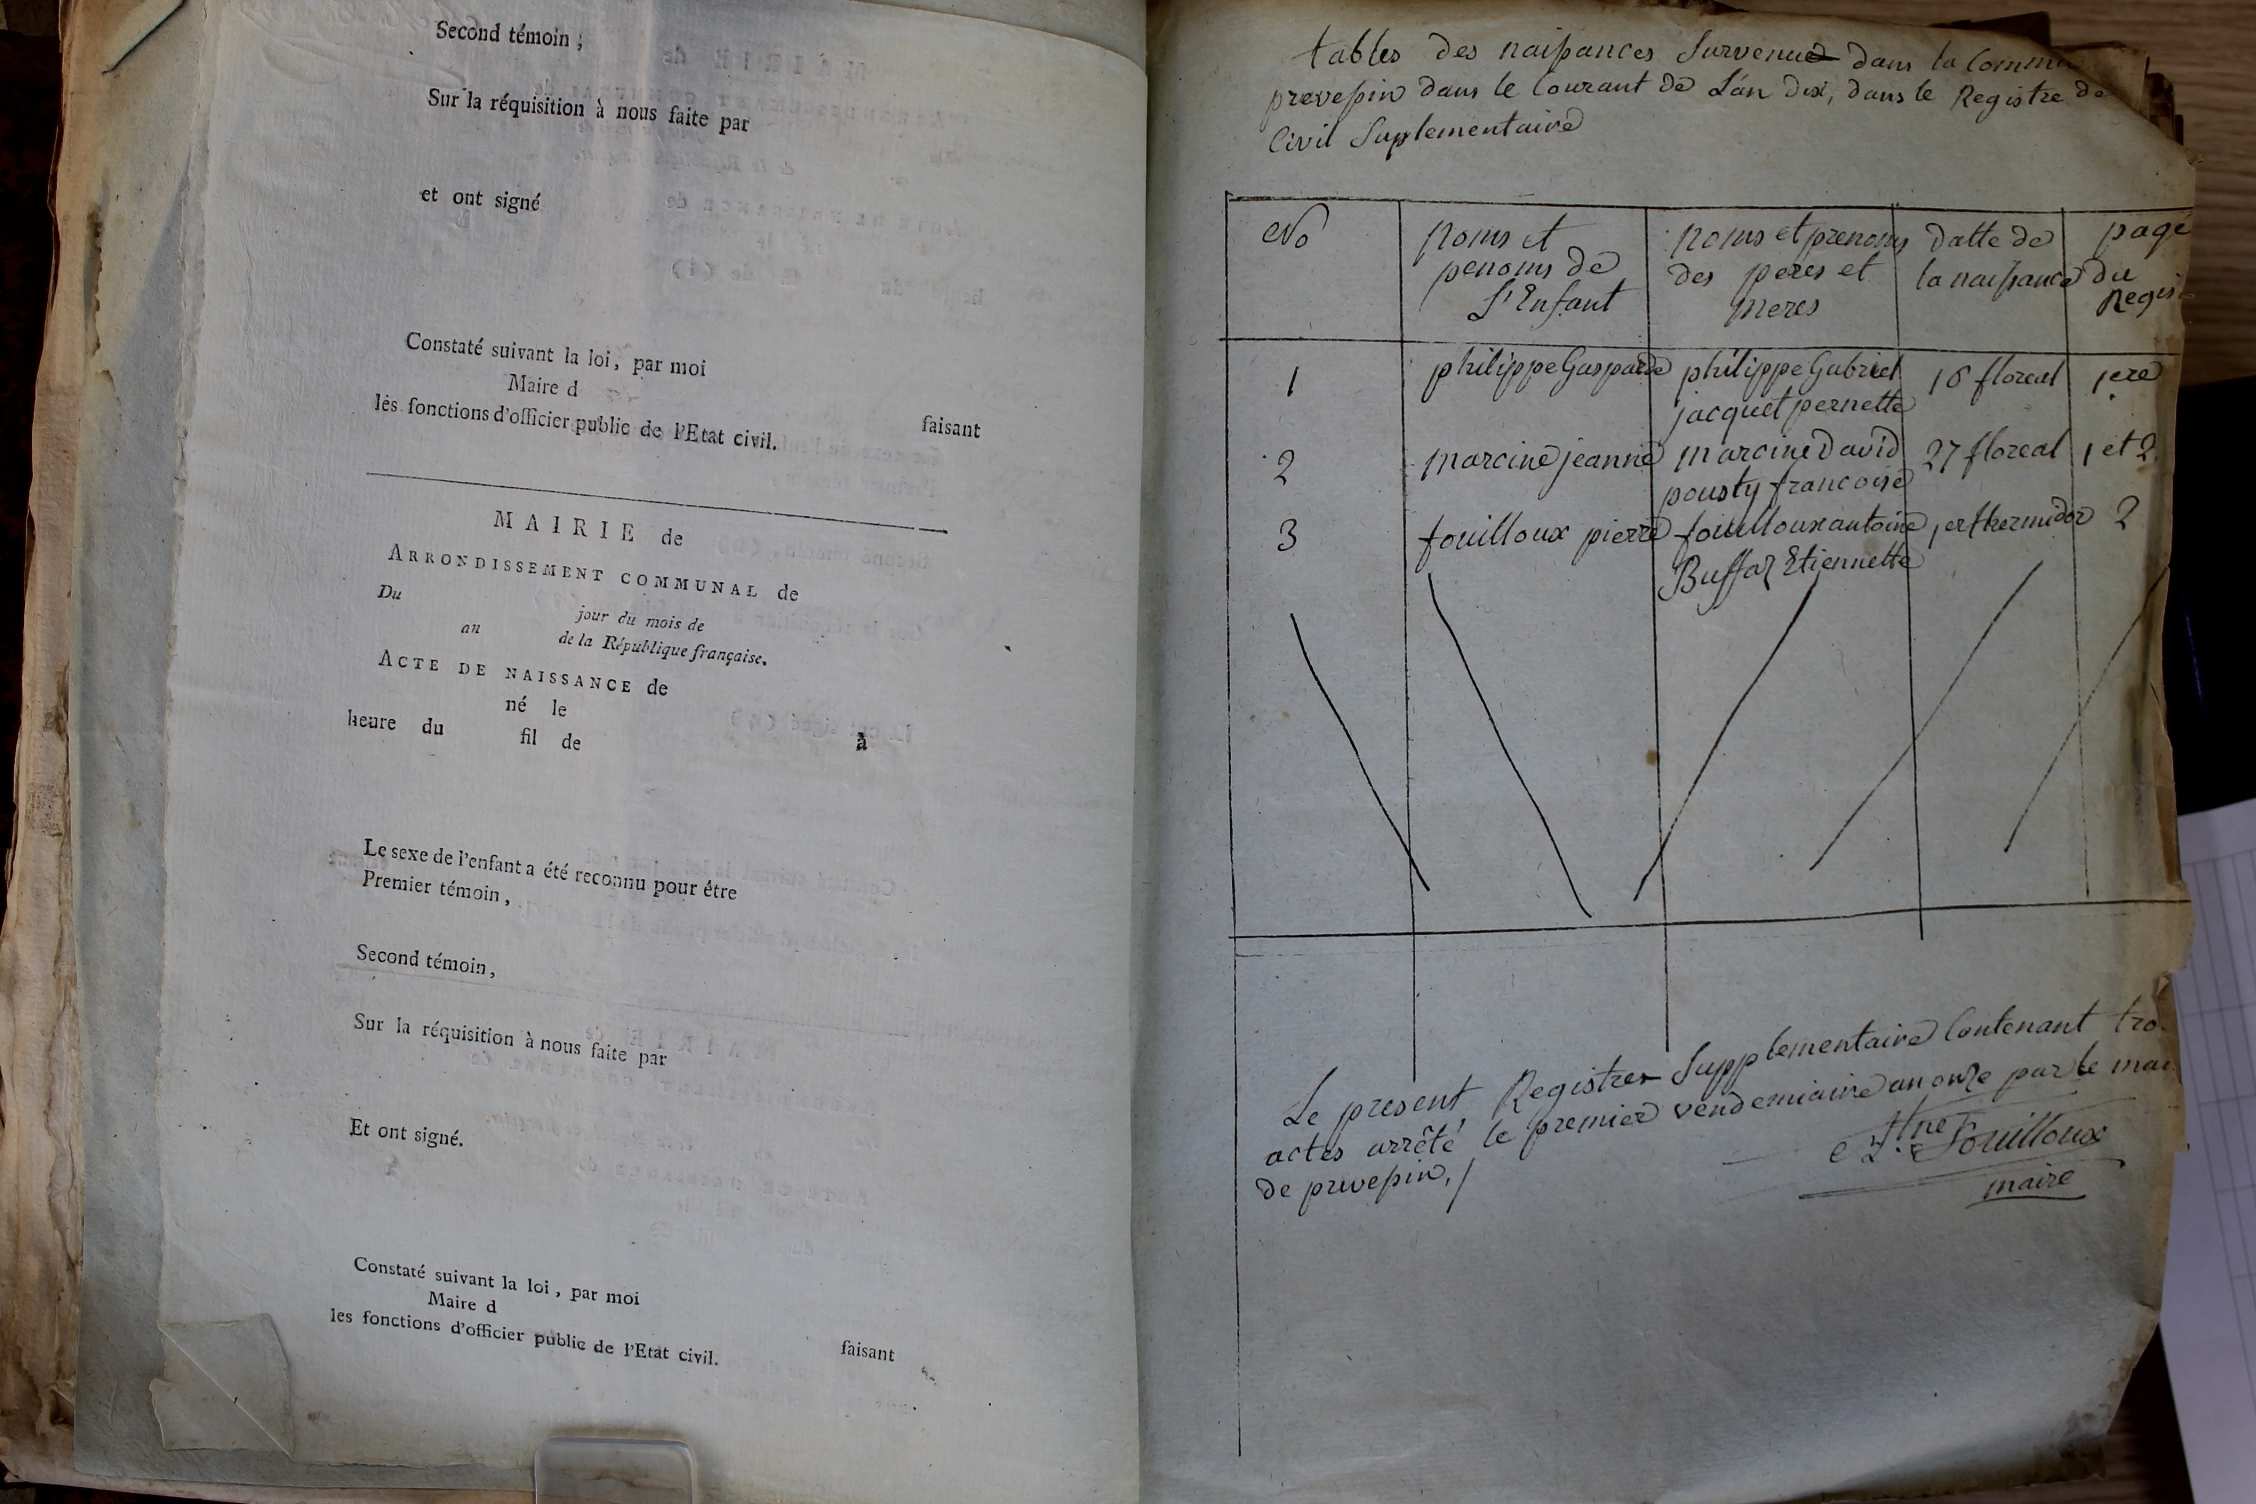 Second témoin ;
Sur la réquisition à nous faite par
et ont signé
Constaté suivant la loi, par moi
Maire d
faisant
les fonctions d'officier public de l'Etat civil.
MAIRIE de
ARRONDISSEMENT COMMUNAL de
Du
jour du mois de
an
de la République française.
ACTE DE NAISSANCE de
né le
à
heure du
fil de
Le sexe de l'enfant a été reconnu pour être
Premier témoin,
Second témoin,
Sur la réquisition à nous faite par
Et ont signé.
Constaté suivant la loi, par moi
Maire d
faisant
les fonctions d'officier public de l'Etat civil.
tables des naissances Survenue dans la Commu
prevessin dans le Courant de L'an dix, dans le Registre de
Civil Suplementaire
No
noms et
penoms de
L'Enfant
noms et prenoms
des peres et
meres
datte de
la naissance
page
du
Regis
1
philippe Gasparde
philippe Gabriel
jacquet pernette
16 floreal
1ere
2
marcine jeanne
marcine David
pousty francoise
27 floreal
1 et 2
3
fouilloux pierre
fouilloux antoine
Buffaz Etiennette
1er thermidor
2
Le present Registre Supplementaire Contenant tro
actes arrêté le premier vendemiaire an onze par le mai
de prevessin,
Fouilloux
maire